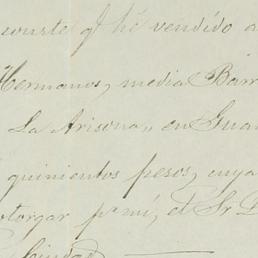 conste q͂ hé vendído a
Hermanos, media Barr
La Arisona,, en Gua
quinientos pesos, cuya
otorgar p.r mí, el Sr D